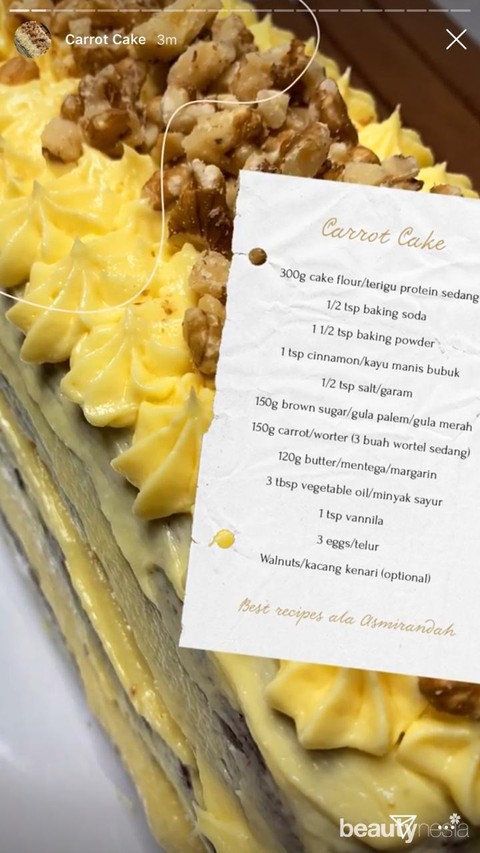 Carrot Cake 3m
Carrot Cake
300g cake flour/terigu protein sedang
1/2 tsp baking soda
1 1/2 tsp baking powder
1 tsp cinnamon/kayu manis bubuk
1/2 tsp salt/garam
150g brown sugar/gula palem/gula merah
150g carrot/worter (3 buah wortel sedang)
120g butter/mentega/margarin
3 tbsp vegetable oil/minyak sayur
1 tsp vannila
3 eggs/telur
Walnuts/kacang kenari (optional)
Best recipes ala Asmirandah
beautynesia